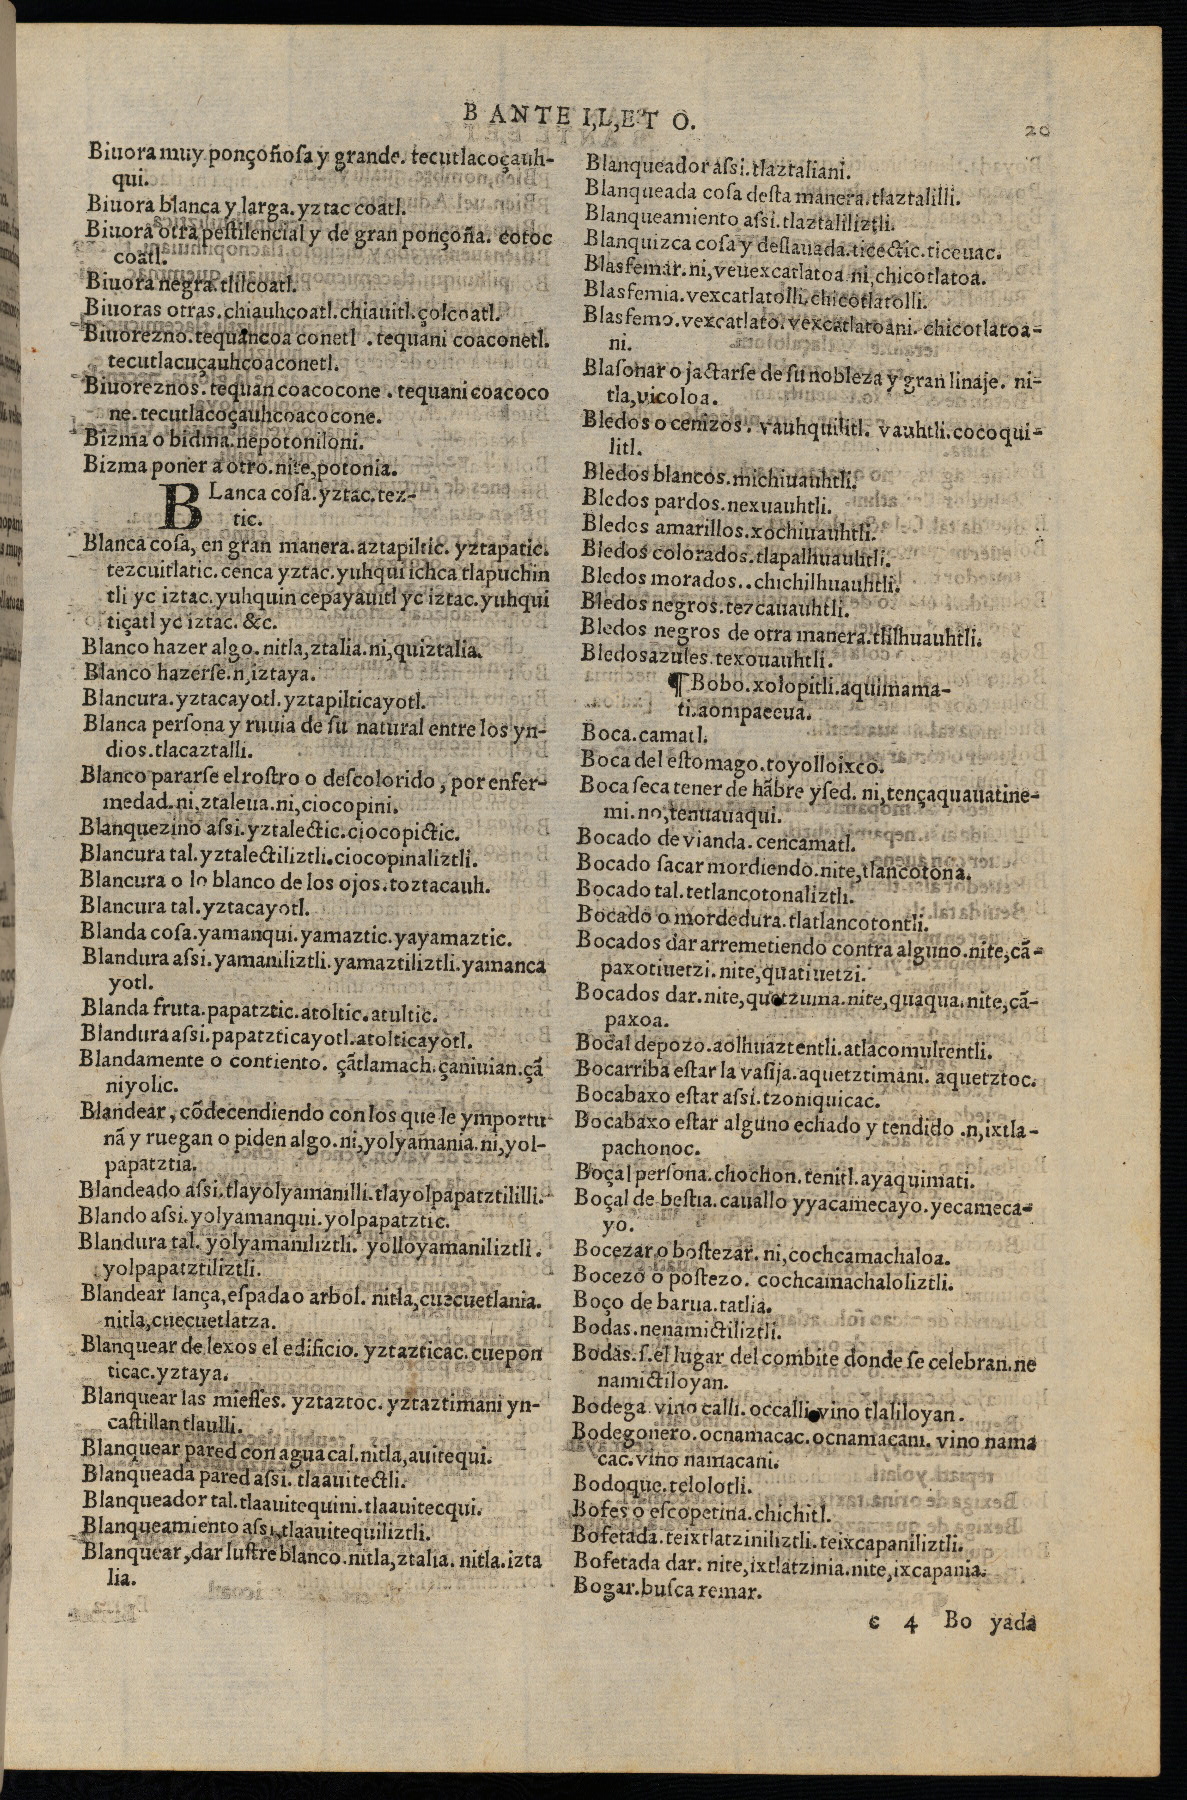 B ANTE I,L,ET O.
20
Biuora muy ponçoñosa y grande. tecutlacoçauh-
qui.
Biuora blanca y larga. yztac coatl.
Biuora otra pestilencial y de gran ponçoña. cotoc
coatl.
Biuora negra. tlilcoatl.
Biuoras otras. chiauhcoatl. chiauitl. çolcoatl.
Biuorezno. tequancoa conetl . tequani coaconetl.
tecutlacuçauhcoaconetl.
Biuoreznos. tequan coacocone . tequani coacoco
ne. tecutlacoçauhcoacocone.
Bizma o bidma. nepotoniloni.
Bizma poner a otro. nite, potonia.
BLanca cosa. yztac. tez-
tic.
Blanca cosa, en gran manera. aztapiltic. yztapatic.
tezcuitlatic. cenca yztac. yuhqui ichca tlapuchin
tli yc iztac. yuhquin cepayauitl yc iztac. yuhqui
tiçatl yc iztac. &c.
Blanco hazer algo. nitla, ztalia. ni, quiztalia.
Blanco hazerse. n, iztaya.
Blancura. yztacayotl. yztapilticayotl.
Blanca persona y ruuia de su natural entre los yn-
dios. tlacaztalli.
Blanco pararse el rostro o descolorido, por enfer-
medad. ni, ztaleua. ni, ciocopini.
Blanquezino assi. yztalectic. ciocopictic.
Blancura tal. yztalectiliztli. ciocopinaliztli.
Blancura o lo blanco de los ojos. toztacauh.
Blancura tal. yztacayotl.
Blanda cosa. yamanqui. yamaztic. yayamaztic.
Blandura assi. yamaniliztli. yamaztiliztli. yamanca
yotl.
Blanda fruta. papatztic. atoltic. atultic.
Blandura assi. papatzticayotl. atolticayotl.
Blandamente o contiento. çãtlamach. çaniuian. çã
niyolic.
Blandear, cõdecendiendo con los que le ymportu
nã y ruegan o piden algo. ni, yolyamania. ni, yol-
papatztia.
Blandeado assi. tlayolyamanilli. tlayolpapatztililli.
Blando assi. yolyamanqui. yolpapatztic.
Blandura tal. yolyamaniliztli. yolloyamaniliztli.
yolpapatztiliztli.
Blandear lança, espada o arbol. nitla, cuecuetlania.
nitla, cuecuetlatza.
Blanquear de lexos el edificio. yztazticac. cuepon
ticac. yztaya.
Blanquear las miesses. yztaztoc. yztaztimani yn-
castillan tlaulli.
Blanquear pared con agua cal. nitla, auitequi.
Blanqueada pared assi. tlaauitectli.
Blanqueador tal. tlaauitequini. tlaauitecqui.
Blanqueamiento assi. tlaauitequiliztli.
Blanquear, dar lustre blanco. nitla, ztalia. nitla. izta
lia.
Blanqueador assi. tlaztaliani.
Blanqueada cosa desta manera. tlaztalilli.
Blanqueamiento assi. tlaztaliliztli.
Blanquizca cosa y deslauada. ticectic. ticeuac.
Blasfemar. ni, veuexcatlatoa ni, chicotlatoa.
Blasfemia. vexcatlatolli. chicotlatolli.
Blasfemo. vexcatlato. vexcatlatoani. chicotlatoa-
ni.
Blasonar o jactarse de su nobleza y gran linaje. ni-
tla, uicoloa.
Bledos o cenizos. vauhquilitl. vauhtli. cocoqui-
litl.
Bledos blancos. michiuauhtli.
Bledos pardos. nexuauhtli.
Bledos amarillos. xochiuauhtli.
Bledos colorados. tlapalhuauhtli.
Bledos morados.. chichilhuauhtli.
Bledos negros. tezcauauhtli.
Bledos negros de otra manera. tlilhuauhtli.
Bledos azules. texouauhtli.
¶ Bobo. xolopitli. aquimama-
ti. aompaeeua.
Boca. camatl.
Boca del estomago. toyolloixco.
Boca seca tener de hãbre y sed. ni, tençaquauatine-
mi. no, tenuauaqui.
Bocado de vianda. cencamatl.
Bocado sacar mordiendo. nite, tlancotona.
Bocado tal. tetlancotonaliztli.
Bocado o mordedura. tlatlancotontli.
Bocados dar arremetiendo contra alguno. nite, cã-
paxotiuetzi. nite, quatiuetzi.
Bocados dar. nite, quetzuma. nite, quaqua. nite, cã-
paxoa.
Bocal de pozo. aolhuaztentli. atlacomultentli.
Bocarriba estar la vasija. aquetztimani. aquetztoc.
Bocabaxo estar assi. tzoniquicac.
Bocabaxo estar alguno echado y tendido .n, ixtla-
pachonoc.
Boçal persona. chochon. tenitl. ayaquimati.
Boçal de bestia. cauallo yyacamecayo. yecameca-
yo.
Bocezar o bostezar. ni, cochcamachaloa.
Bocezo o postezo. cochcamachaloliztli.
Boço de barua. tatlia.
Bodas. nenamictiliztli.
Bodas. s. el lugar del combite donde se celebran. ne
namictiloyan.
Bodega. vino calli. occalli. vino tlaliloyan.
Bodegonero. ocnamacac. ocnamacani. vino nama
cac. vino namacani.
Bodoque. telolotli.
Bofes o escopetina. chichitl.
Bofetada. teixtlatziniliztli. teixcapaniliztli.
Bofetada dar. nite, ixtlatzinia. nite, ixcapania.
Bogar. busca remar.
c 4 Bo yada